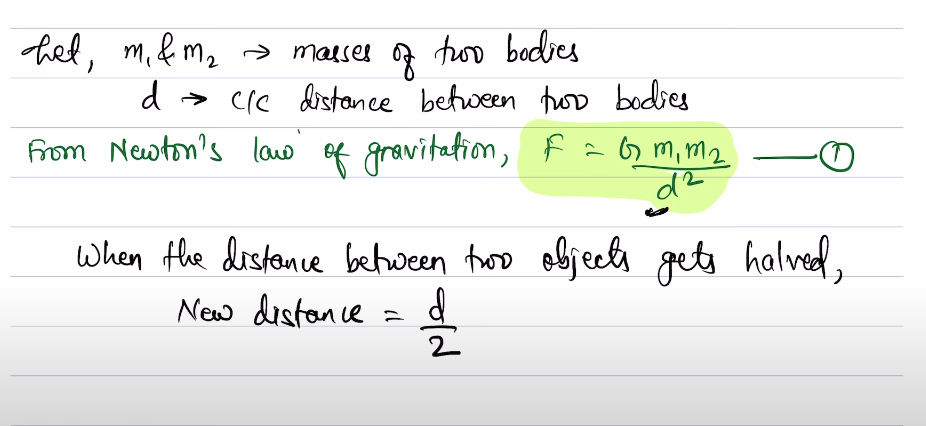 Let, m₁ & m₂ → masses of two bodies
d → c/c distance between two bodies
From Newton's law of gravitation, F = G m₁m₂/d² —— ①
When the distance between two objects gets halved,
New distance = d/2